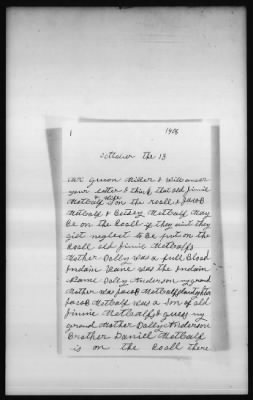 1
1908
October the 13
Mr Guion Miller I will anser
your letter I think that old Jimie
& wife
Metcalf on the roall & Jacob
Metcalf & Betsey Metcalf May
Be on the Roall if they aint they
gist neglest to be put on the
Roall old Jimie Metcalfs
Mother Dolly was a full Blood
Indain Name was the Indain
Name Dolly Anderson my grand
Mother was Jacob Metcalf daughter
Jacob Metcalf was a Son of old
Jimie Metcalf & I guess my
grand Mother Dolly Anderson
Brother Daniel Metcalf
is on the Roall there